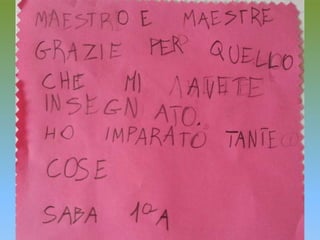 MAESTRO E MAESTRE
GRAZIE PER QUELLO
CHE MI AVETE
INSEGNATO.
HO IMPARATO TANTE
COSE
SABA 1ª A